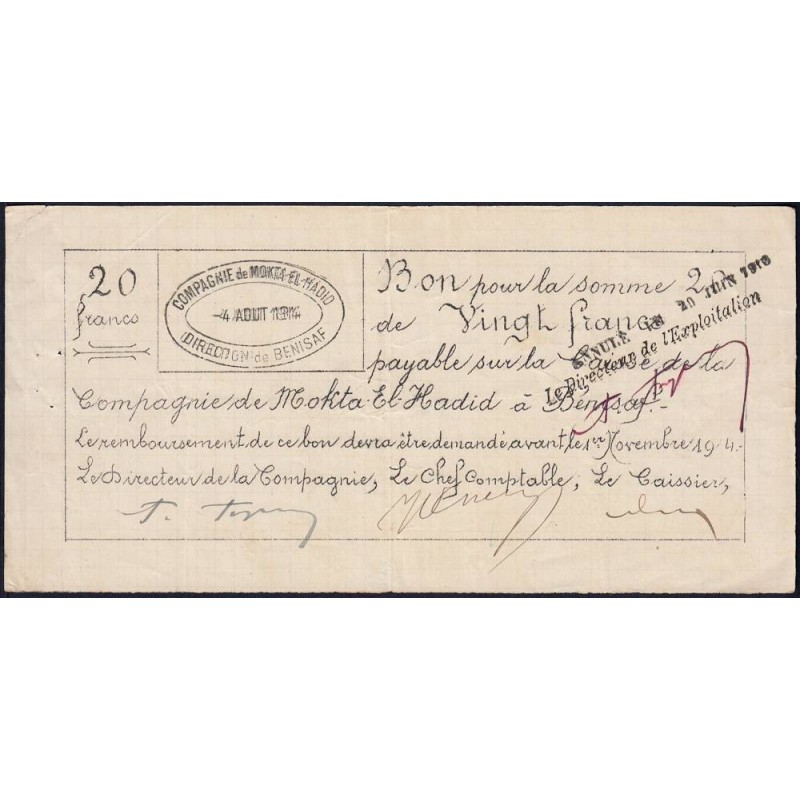 20
francs
COMPAGNIE de MOKTA-EL-HADID
-4 AOUT 1914
DIRECTION de BENISAF
Bon pour la somme
de Vingt francs
payable sur la Caisse de la
Compagnie de Mokta-El-Hadid à Benisaf.-
Le remboursement de ce bon devra être demandé avant le 1er Novembre 1914.-
Le Directeur de la Compagnie, Le Chef Comptable, Le Caissier,
ANNULÉ LE 20 JUIN 1918
Le Directeur de l'Exploitation